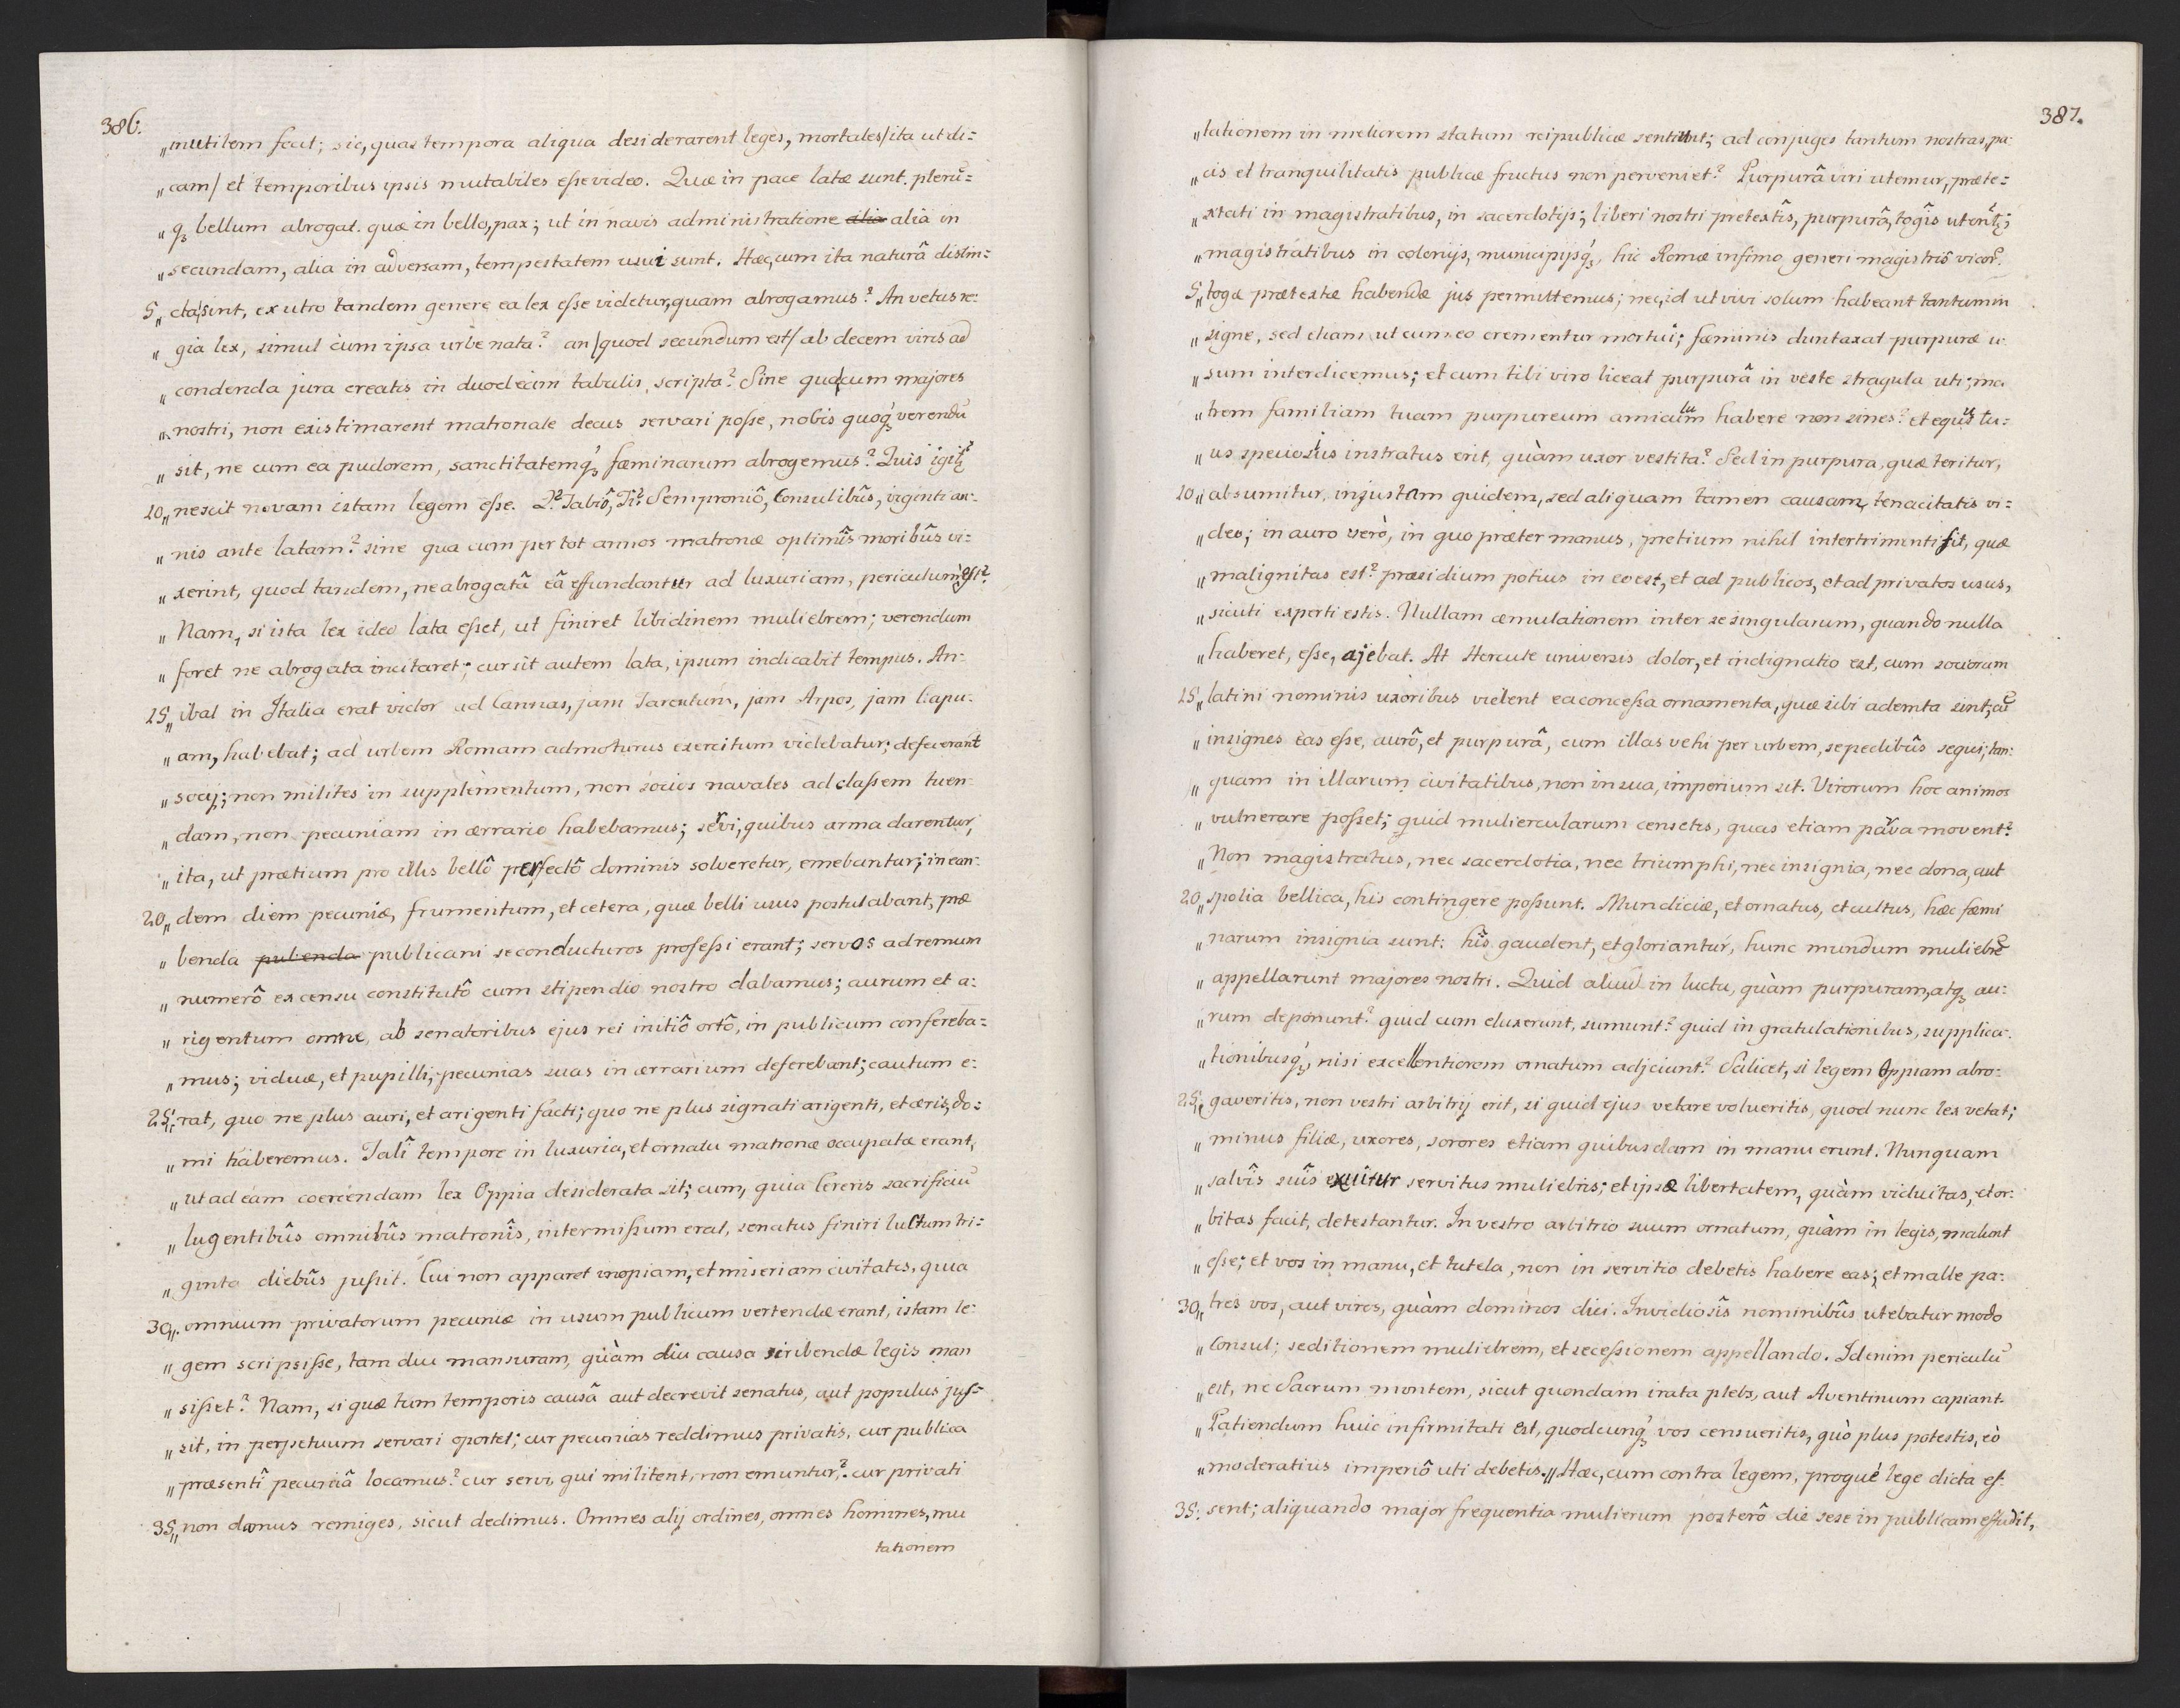 386.
„ inutilem fecit; sic, quas tempora aliqua desiderarent leges, mortales/ ita ut di=
„ cam/ et temporibus ipsis mutabiles eſse video. Quæ in pace latæ sunt. plerū=
„ qȝ bellum abrogat. quæ in bello, pax; ut in navis administratione alia alia in
„ secundam, alia in adversam, tempestatem usui sunt. Hæc, cum ita naturâ distin=
5„ cta sint, ex utro tandem genere ea lex eſse videtur, quam abrogamus? An vetus re=
„ gia lex, simul cum ipsa urbe nata? an/ quod secundum est/ ab decem viris ad
„ condenda jura creatis in duodecim tabulis scripta? Sine qua, cum majores
„ nostri, non existimarent matronale decus servari poſse, nobis quoqȝ verendū
„ sit, ne cum ea pudorem, sanctitatemqȝ fæminarum abrogemus? Quis igit̃
10„ nescit novam istam legem eſse. Q? Fabiô, Ti? Semproniô, Consulibûs, viginti an=
„ nis ante latam? sine qua cum per tot annos matronæ optimîs moribûs vi=
„ xerint, quod tandem, ne abrogatâ eâ effundantur ad luxuriam, periculum est?
„ Nam, si ista lex ideo lata eſset, ut finiret libidinem muliebrem; verendum
„ foret ne abrogata incitaret; cur sit autem lata, ipsum indicabit tempus. An=
15„ ibal in Italia erat victor ad Cannas, jam Tarentum, jam Arpos, jam Capu=
„ am, habebat; ad urbem Romam admoturus exercitum videbatur; defecerant
„ socij; non milites in supplementum, non socios navales ad claſsem tuen=
„ dam, non pecuniam in ærrario habebamus; servi, quibus arma darentur,
„ ita, ut prætium pro illis bellô perfectô dominis solveretur, emebantur; in ean=
20„ dem diem pecuniæ, frumentum, et cetera, quæ belli usus postulabant, præ
„ benda pubenda publicani se conducturos profeſsi erant; servos ad remum
„ numerô ex censu constitutô cum stipendio nostro dabamus; aurum et a=
„ rigentum omne, ab senatoribus ejus rei initiô ortô, in publicum confereba=
„ mus; viduæ, et pupilli, pecunias suas in ærrarium deferebant; cautum e=
25„ rat, quo ne plus auri, et arigenti facti; quo ne plus signati arigenti, et æris, do=
„ mi haberemus. Tali tempore in luxuria, et ornatu matronæ occupatæ erant,
„ ut ad eam coercendam lex Oppia desiderata sit; cum, quia Cereris sacrificiū
„ lugentibûs omnibûs matronîs, intermiſsum erat, senatus finiri luctum tri=
„ ginta diebûs juſsit. Cui non apparet inopiam, et miseriam civitatis, quia
30„ omnium privatorum pecuniæ in usum publicum vertendæ erant, istam le=
„ gem scripsiſse, tam diu mansuram, quàm diu causa scribendæ legis man
„ siſset? Nam, si quæ tum temporis causâ aut decrevit senatus, aut populus juſ=
„ sit, in perpetuum servari oportet; cur pecunias reddimus privatis, cur publica
„ præsentî pecuniâ locamus? cur servi, qui militent, non emuntur? cur privati
35„ non damus remiges, sicut dedimus. Omnes alij ordines, omnes homines, mu
tationem
387.
„ tationem in meliorem statum reipublicæ sentiunt; ad conjuges tantum nostras, pa=
„ cis et tranquilitatis publicæ fructus non perveniet? Purpurâ viri utemur, præte=
„ xtati in magistratibus, in sacerdotijs; liberi nostri pretextîs, purpurâ, togîs utent̃;
„ magistratibus in colonijs, municipijsqȝ, hic Romæ infimo generi magistris vicor̃.
5„ togæ prætextæ habendæ jus permittemus; nec, id ut vivi solum habeant tantum in
„ signe, sed etiam ut cum eo crementur mortui; fæminis duntaxat purpuræ u=
„ sum interdicemus; et cum tibi viro liceat purpurâ in veste stragula uti; ma
„ trem familiam tuam purpureum amiculum habere non sines? et equus tu=
„ us speciosius instratus erit, quàm uxor vestita? Sed in purpura, quæ teritur,
10„ absumitur, injustam quidem, sed aliquam tamen causam, tenacitatis vi=
„ deo; in auro verò, in quo præter manus, pretium nihil intertrimenti fit, quæ
„ malignitas est? præsidium potius in eo est, et ad publicos, et ad privatos usus,
„ sicuti experti estis. Nullam æmulationem inter se singularum, quando nulla
„ haberet, eſse, ajebat. At Hercule universis dolor, et indignatio est, cum sociorum
15„ latini nominis uxoribus vident ea conceſsa ornamenta, quæ sibi ademta sint; cū
„ insignes eas eſse, aurô, et purpurâ, cum illas vehi per urbem, se pedibûs sequi; tan=
„ quam in illarum civitatibus, non in sua, imperium sit. Virorum hoc animos
„ vulnerare poſset; quid muliercularum censetis, quas etiam parva movent?
„ Non magistratus, nec sacerdotia, nec triumphi, nec insignia, nec dona, aut
20„ spolia bellica, his contingere poſsunt. Mundiciæ, et ornatus, et cultus, hæc fæmi
„ narum insignia sunt: hîs gaudent, et gloriantur, hunc mundum muliebrē
„ appellarunt majores nostri. Quid aliud in luctu, quàm purpuram, atqȝ au=
„ rum deponunt? quid cum eluxerunt, sumunt? quid in gratulationibus, supplica=
„ tionibusqȝ, nisi excellentiorem ornatum adjciunt? Scilicet, si legem Oppiam abro=
25„ gaveritis, non vestri arbitrij erit, si quid ejus vetare volueritis, quod nunc lex vetat;
„ minus filiæ, uxores, sorores etiam quibusdam in manu erunt. Nunquam
„ salvîs suîs exuitur servitus muliebris; et ipsæ libertatem, quàm viduitas, et or=
„ bitas facit, detestantur. In vestro arbitrio suum ornatum, quàm in legis, malunt
„ eſse; et vos in manu, et tutela, non in servitio debetis habere eas; et malle pa=
30„ tres vos, aut viros, quàm dominos dici. Invidiosîs nominibûs utebatur modo
„ Consul; seditionem muliebrem, et seceſsionem appellando. Id enim periculū
„ est, ne Sacrum montem, sicut quondam irata plebs, aut Aventinum capiant.
„ Patiendum huic infirmitati est, quodcunqȝ vos censueritis, quò plus potestis, eò
„ moderatius imperiô uti debetis.„ Hæc, cum contra legem, proque lege dicta eſ=
35. sent; aliquando major frequentia mulierum posterô die sese in publicam effudit,